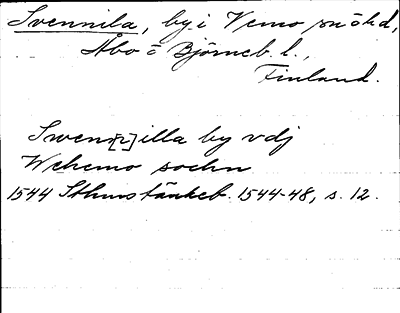 Svennila, by i Vemo snöhd,
Åbo o Björneb. l.,
Finland.
Swen[r]illa by vdj
Wehemo sochn
1544 Sthms tänkeb. 1544-48, s. 12.